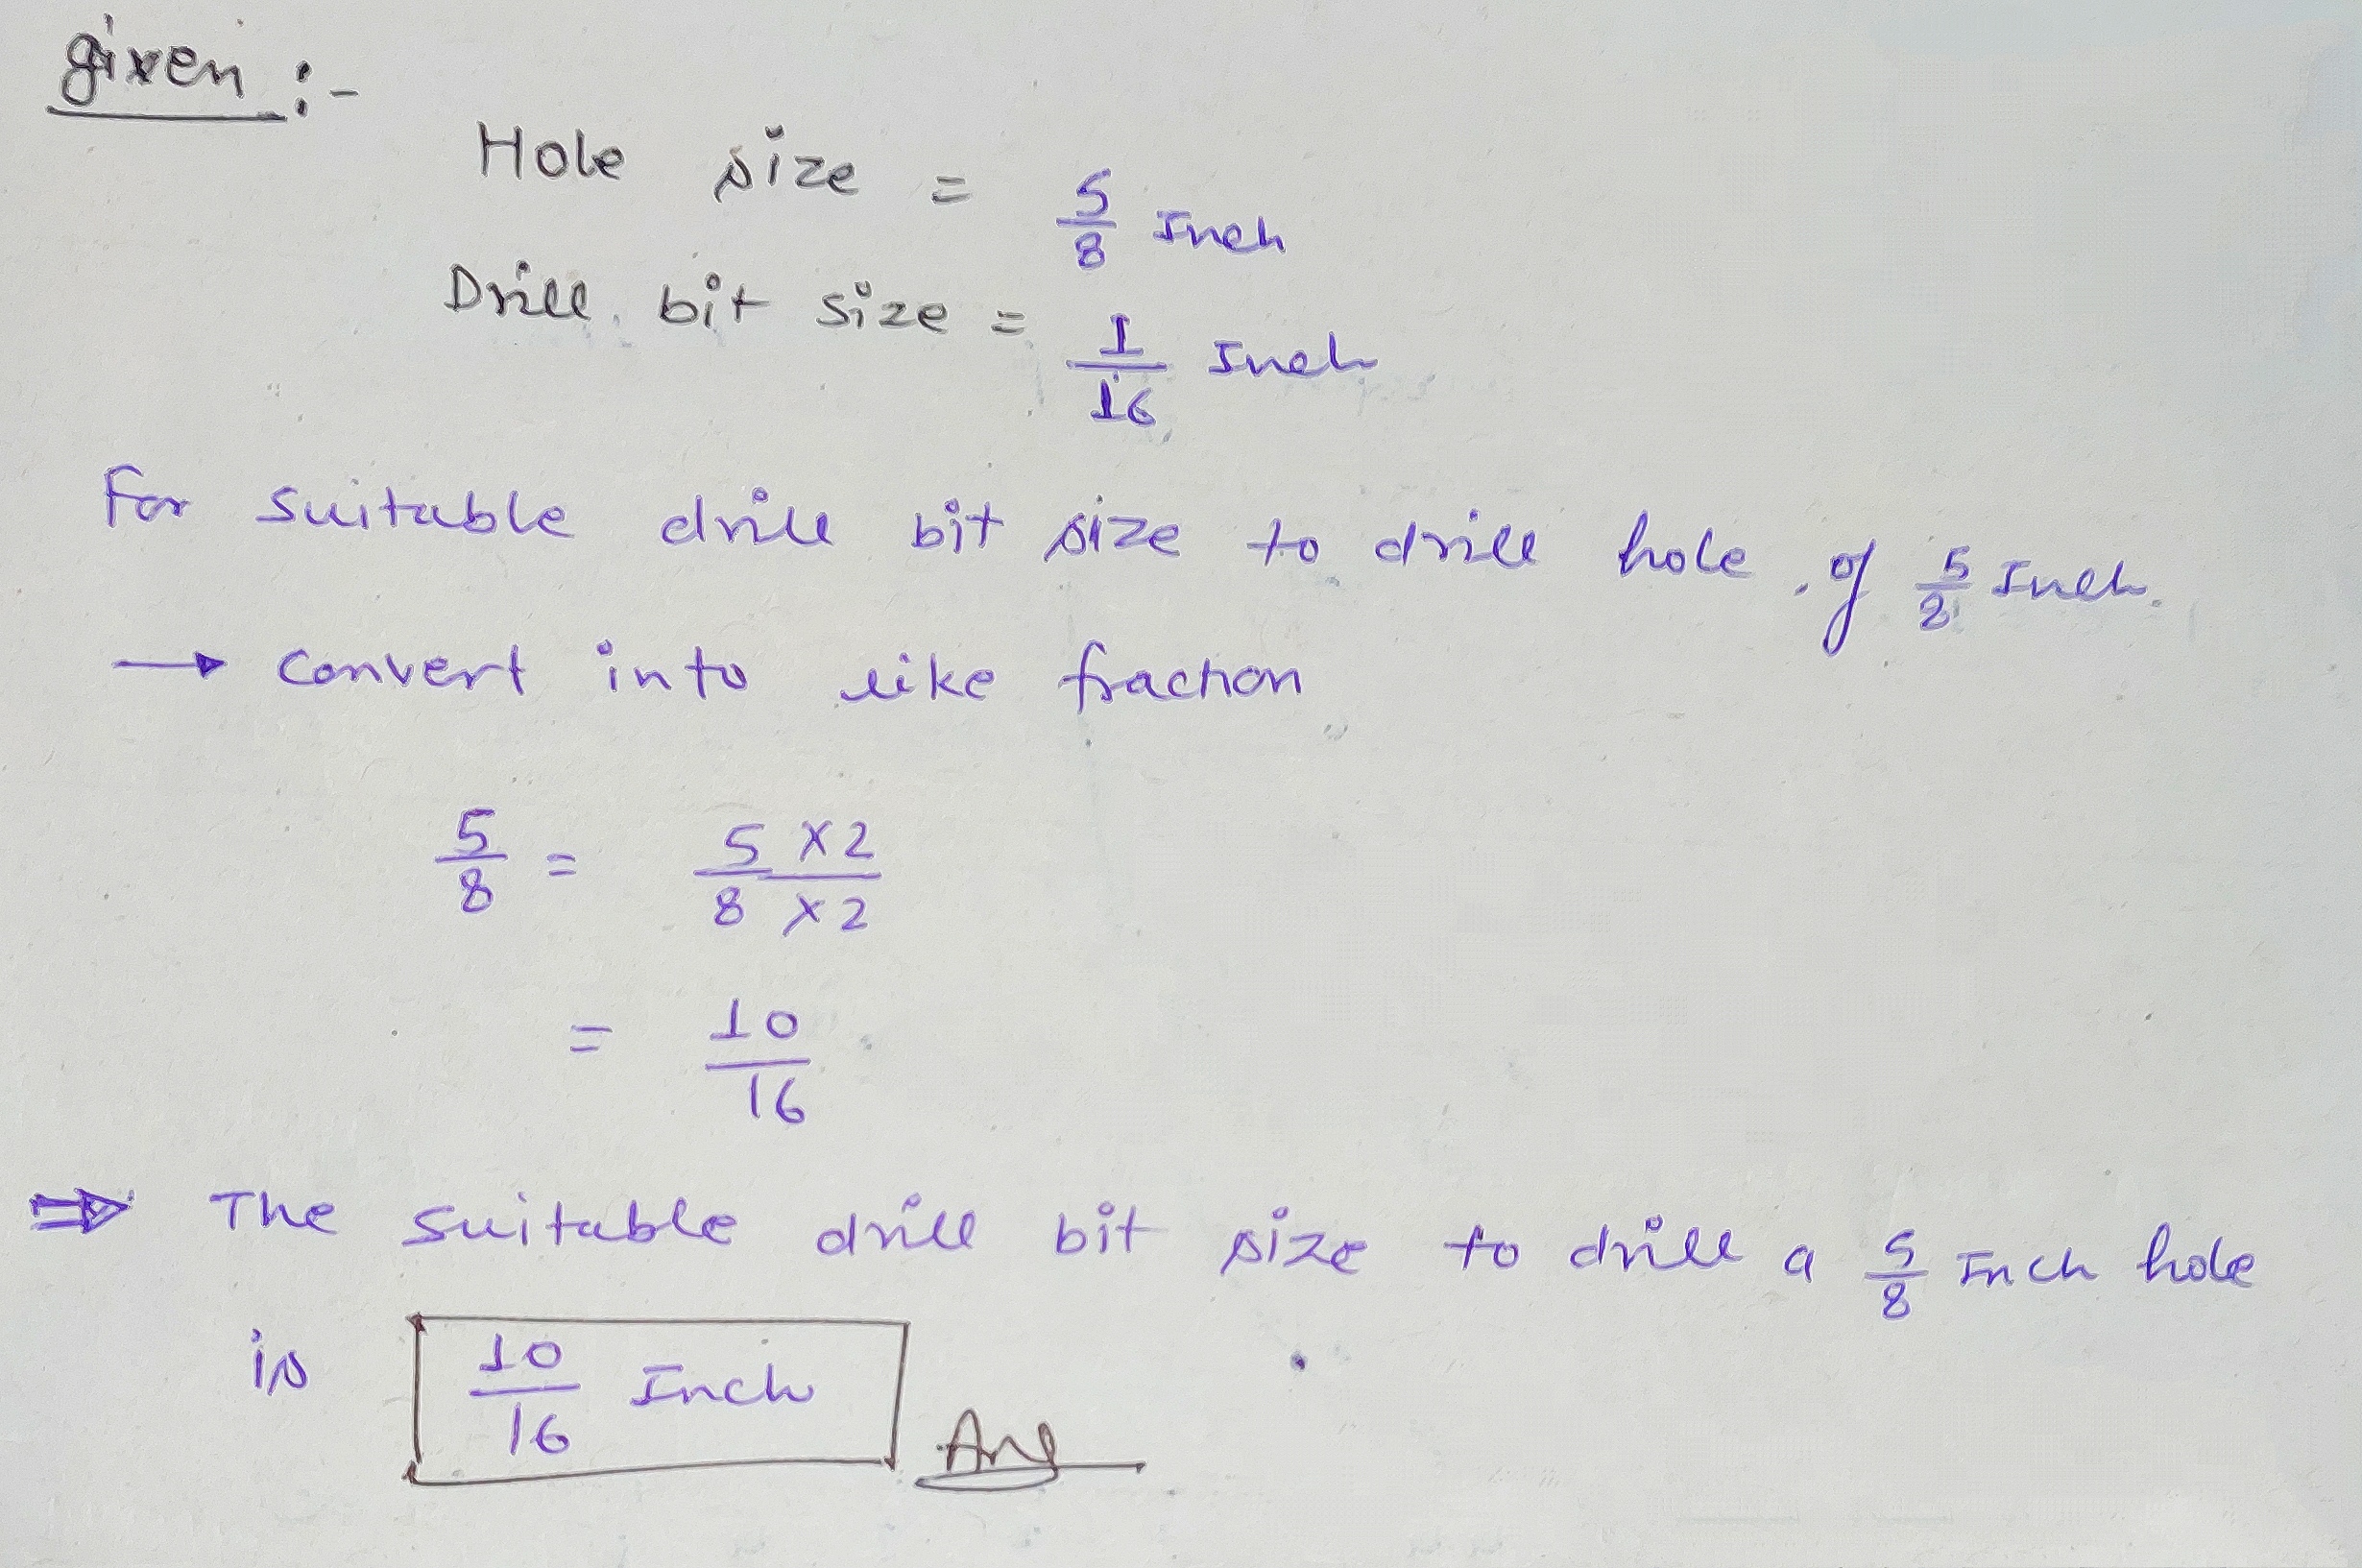 given :-
Hole size = 5/8 Inch
Drill bit size = 1/16 Inch
For suitable drill bit size to drill hole of 5/8 Inch.
→ convert into like fraction
5/8 = 5 x2 / 8 x2
= 10/16
⇒ The suitable drill bit size to drill a 5/8 Inch hole
is 10/16 Inch Ans